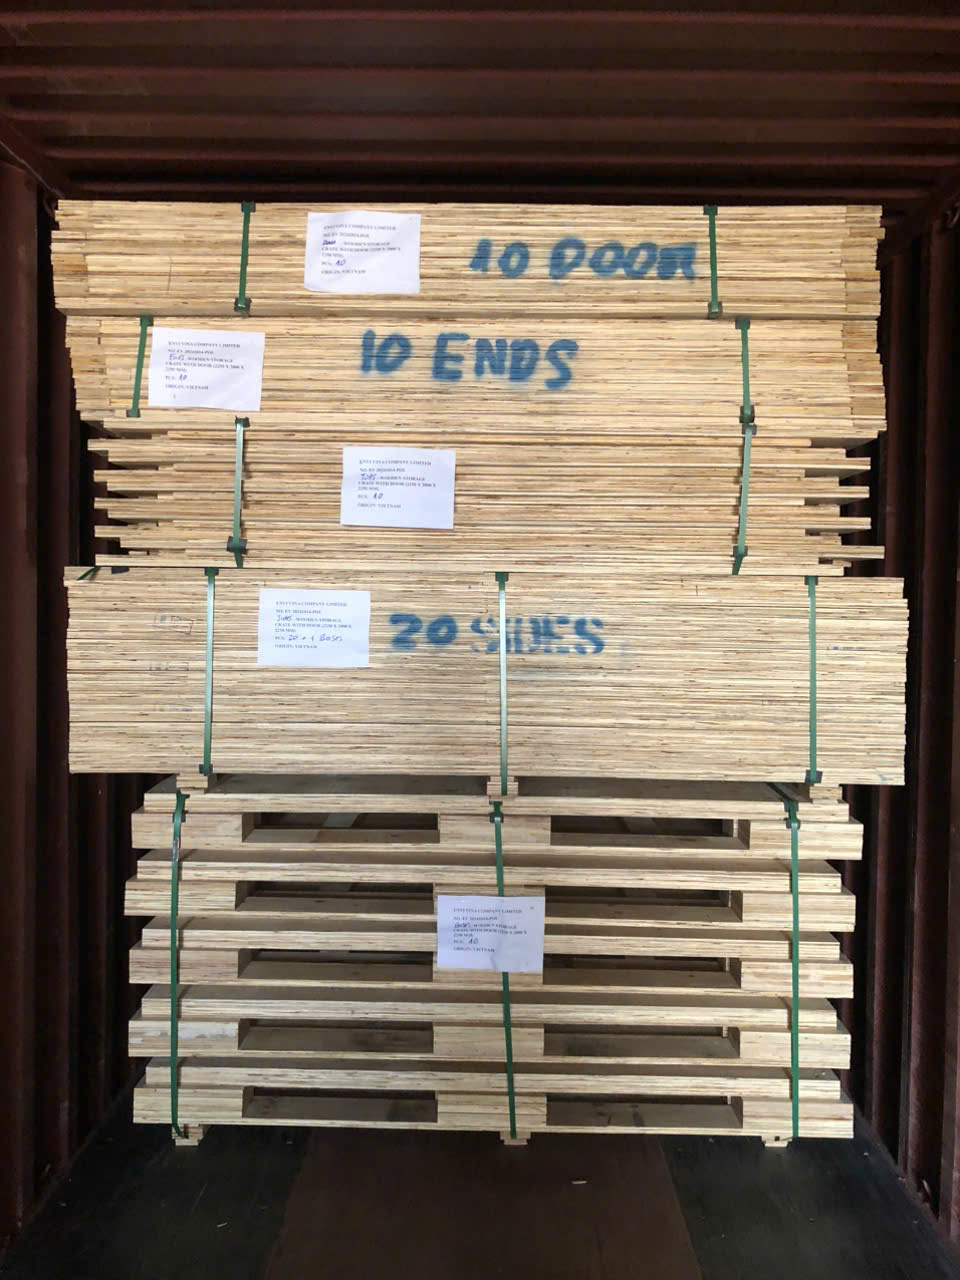 ENVI VINA COMPANY LIMITED
DOOR - WOODEN STORAGE
CRATE WITH DOOR (2250 X 2000 X
2250 MM)
PCS: 10
ORIGIN: VIETNAM
10 DOOR
ENVI VINA COMPANY LIMITED
ENDS - WOODEN STORAGE
CRATE WITH DOOR (2250 X 2000 X
2250 MM)
PCS: 10
ORIGIN: VIETNAM
10 ENDS
ENVI VINA COMPANY LIMITED
TOPS - WOODEN STORAGE
CRATE WITH DOOR (2250 X 2000 X
2250 MM)
PCS: 10
ORIGIN: VIETNAM
ENVI VINA COMPANY LIMITED
SIDES - WOODEN STORAGE
CRATE WITH DOOR (2250 X 2000 X
2250 MM)
PCS: 20 + 1 BASES
ORIGIN: VIETNAM
20 SIDES
ENVI VINA COMPANY LIMITED
BASES - WOODEN STORAGE
CRATE WITH DOOR (2250 X 2000 X
2250 MM)
PCS: 10
ORIGIN: VIETNAM